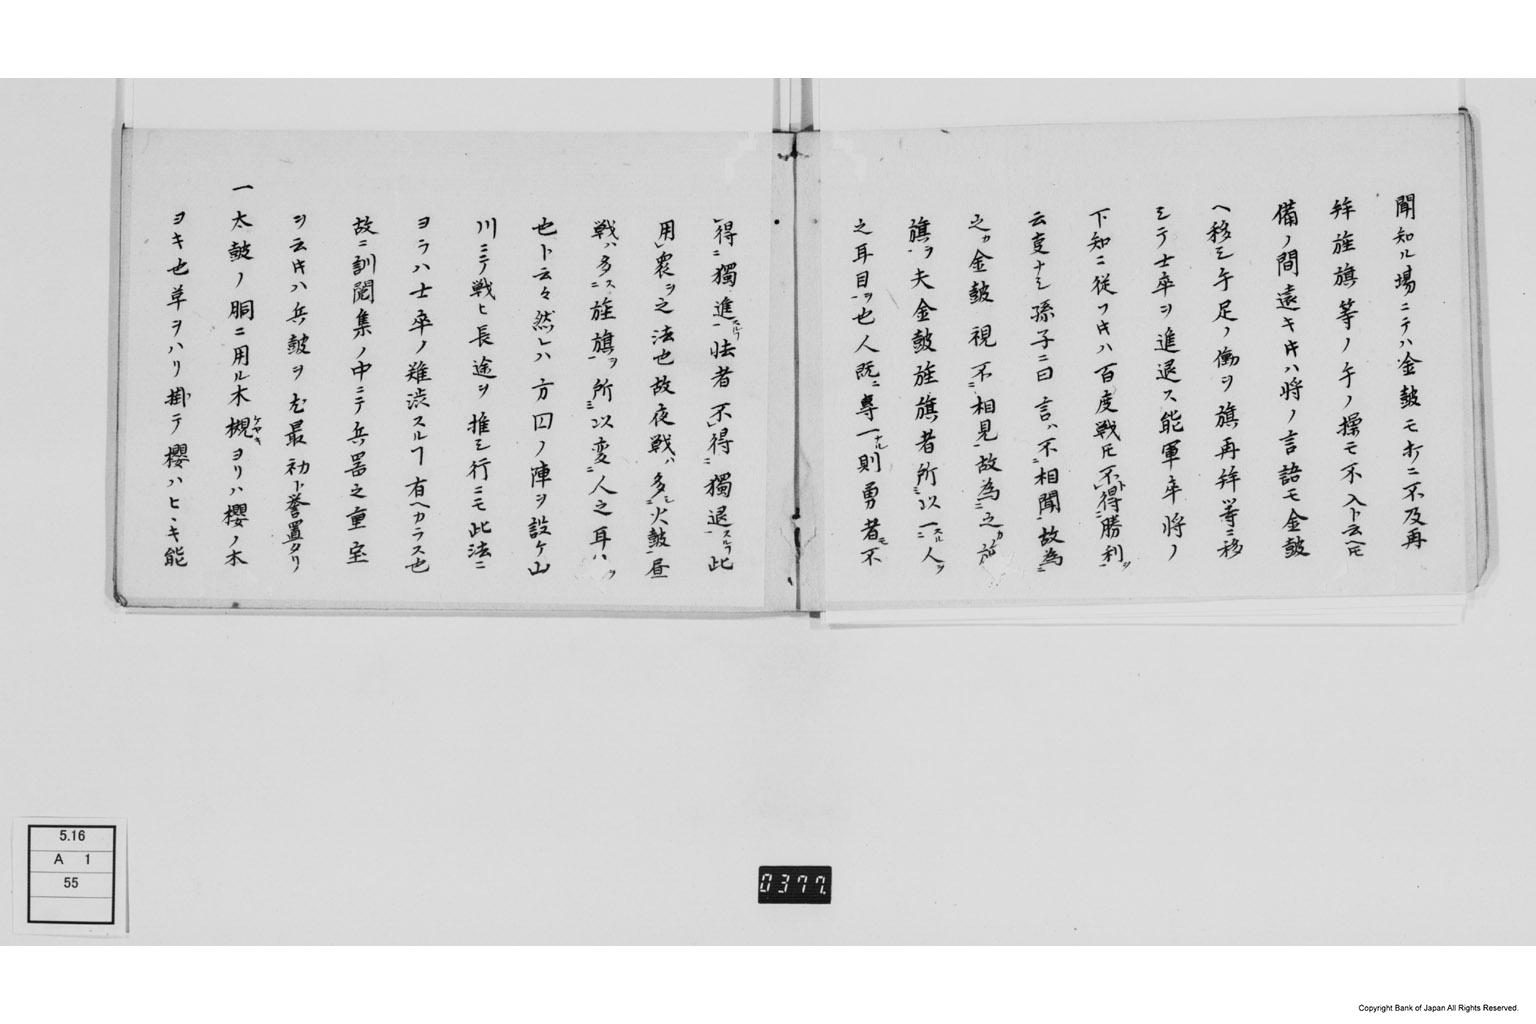 聞知ル場ニテハ金鼓モ打ニ不及再
鉾旌旗等ノ午ノ操モ不入ト云ヘ𪜈
備ノ間遠キ𪜈ハ将ノ言語モ金鼓
ヘ移シ午足ノ働ヲ旗再鉾等ニ移
シテ士卒ヲ進退ス能軍卒将ノ
下知ニ従フ𪜈ハ百度戦𪜈不得勝利ヲ
云夏ナシ孫子ニ曰言ハ不相聞故為
之カ金鼓視不相見故為之カ旌
旗ヲ夫金鼓旌旗者所以一ニスル人ヲ
之耳目ヲ也人既ニ専一ナル則勇者モ不
得ニ獨進スルヿ怯者不得ニ獨退スルヿ此
用衆ヲ之法也故夜戦ハ多シ火鼓昼
戦ハ多ス旌旗ヲ所以変人之耳ハヲ
也ト云々然レハ方円ノ陣ヲ設ケ山
川ニテ戦ヒ長途ヲ推シ行ニモ此法ニ
ヨラハ士卒ノ難渋スルヿ有ヘカラス也
故ニ訓閲集ノ中ニテ兵器之重宝
ヲ云𪜈ハ兵鼓ヲ尤最初ト誉置タリ
一 太鼓ノ胴ニ用ル木槻ケヤキヨリハ櫻ノ木
ヨキ也草ヲハリ掛テ櫻ハヒヽキ能
5.16
A 1
55
0377.
Copyright Bank of Japan All Rights Reserved.